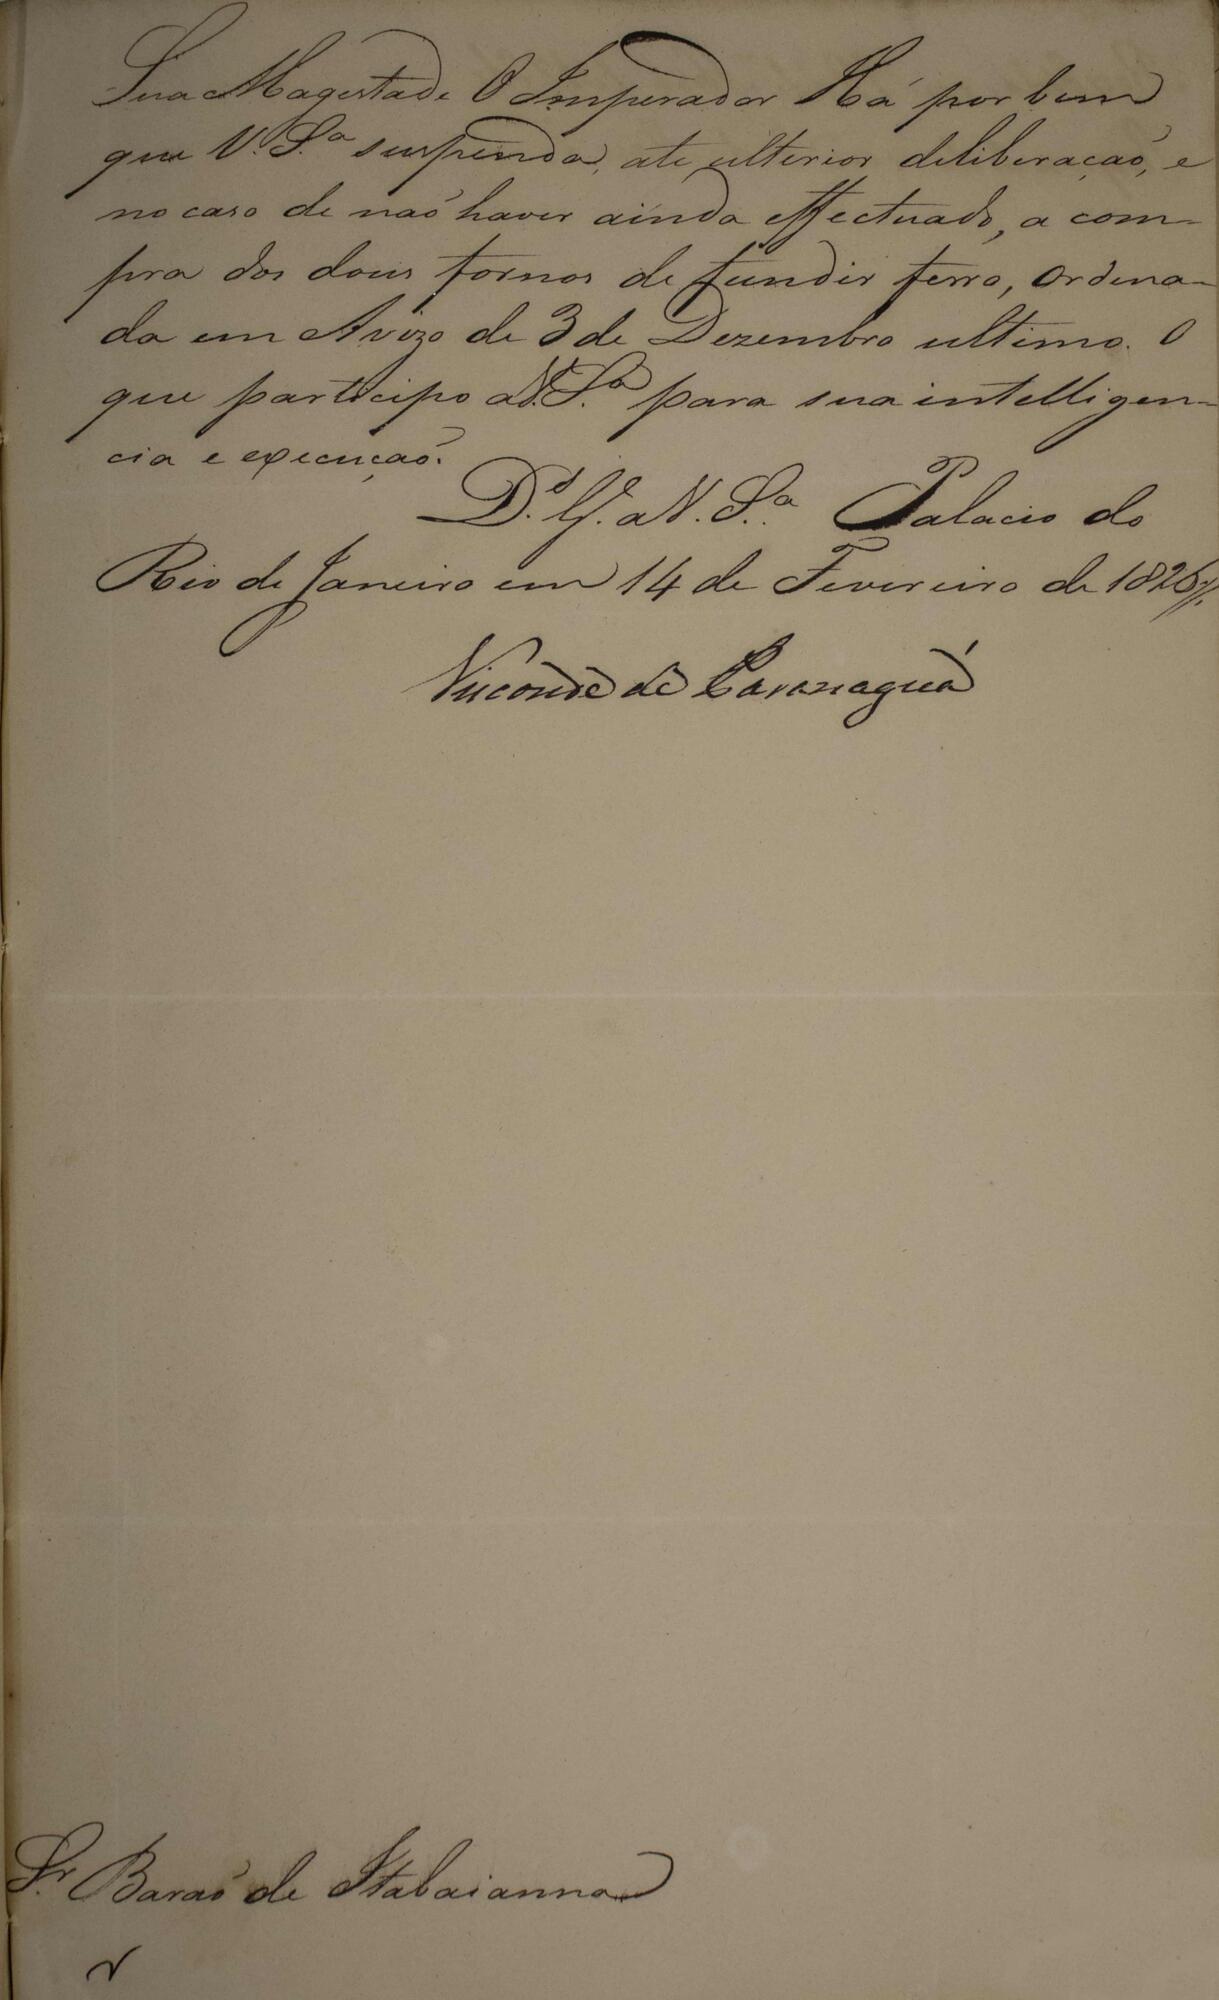 Sua Magestade O Imperador Há por bem
que V. S.ª suspenda, até ulterior deliberação, e
no caso de não haver ainda effectuado, a com-
pra dos dous fornos de fundir ferro, ordena-
da em Avizo de 3 de Dezembro ultimo. O
que participo a V. S.ª para sua intelligen-
cia e execução.
D.s G.e a V. S.ª Palacio do
Rio de Janeiro em 14 de Fevereiro de
Visconde de Paranaguá
Sr. Barão de Itabaianna